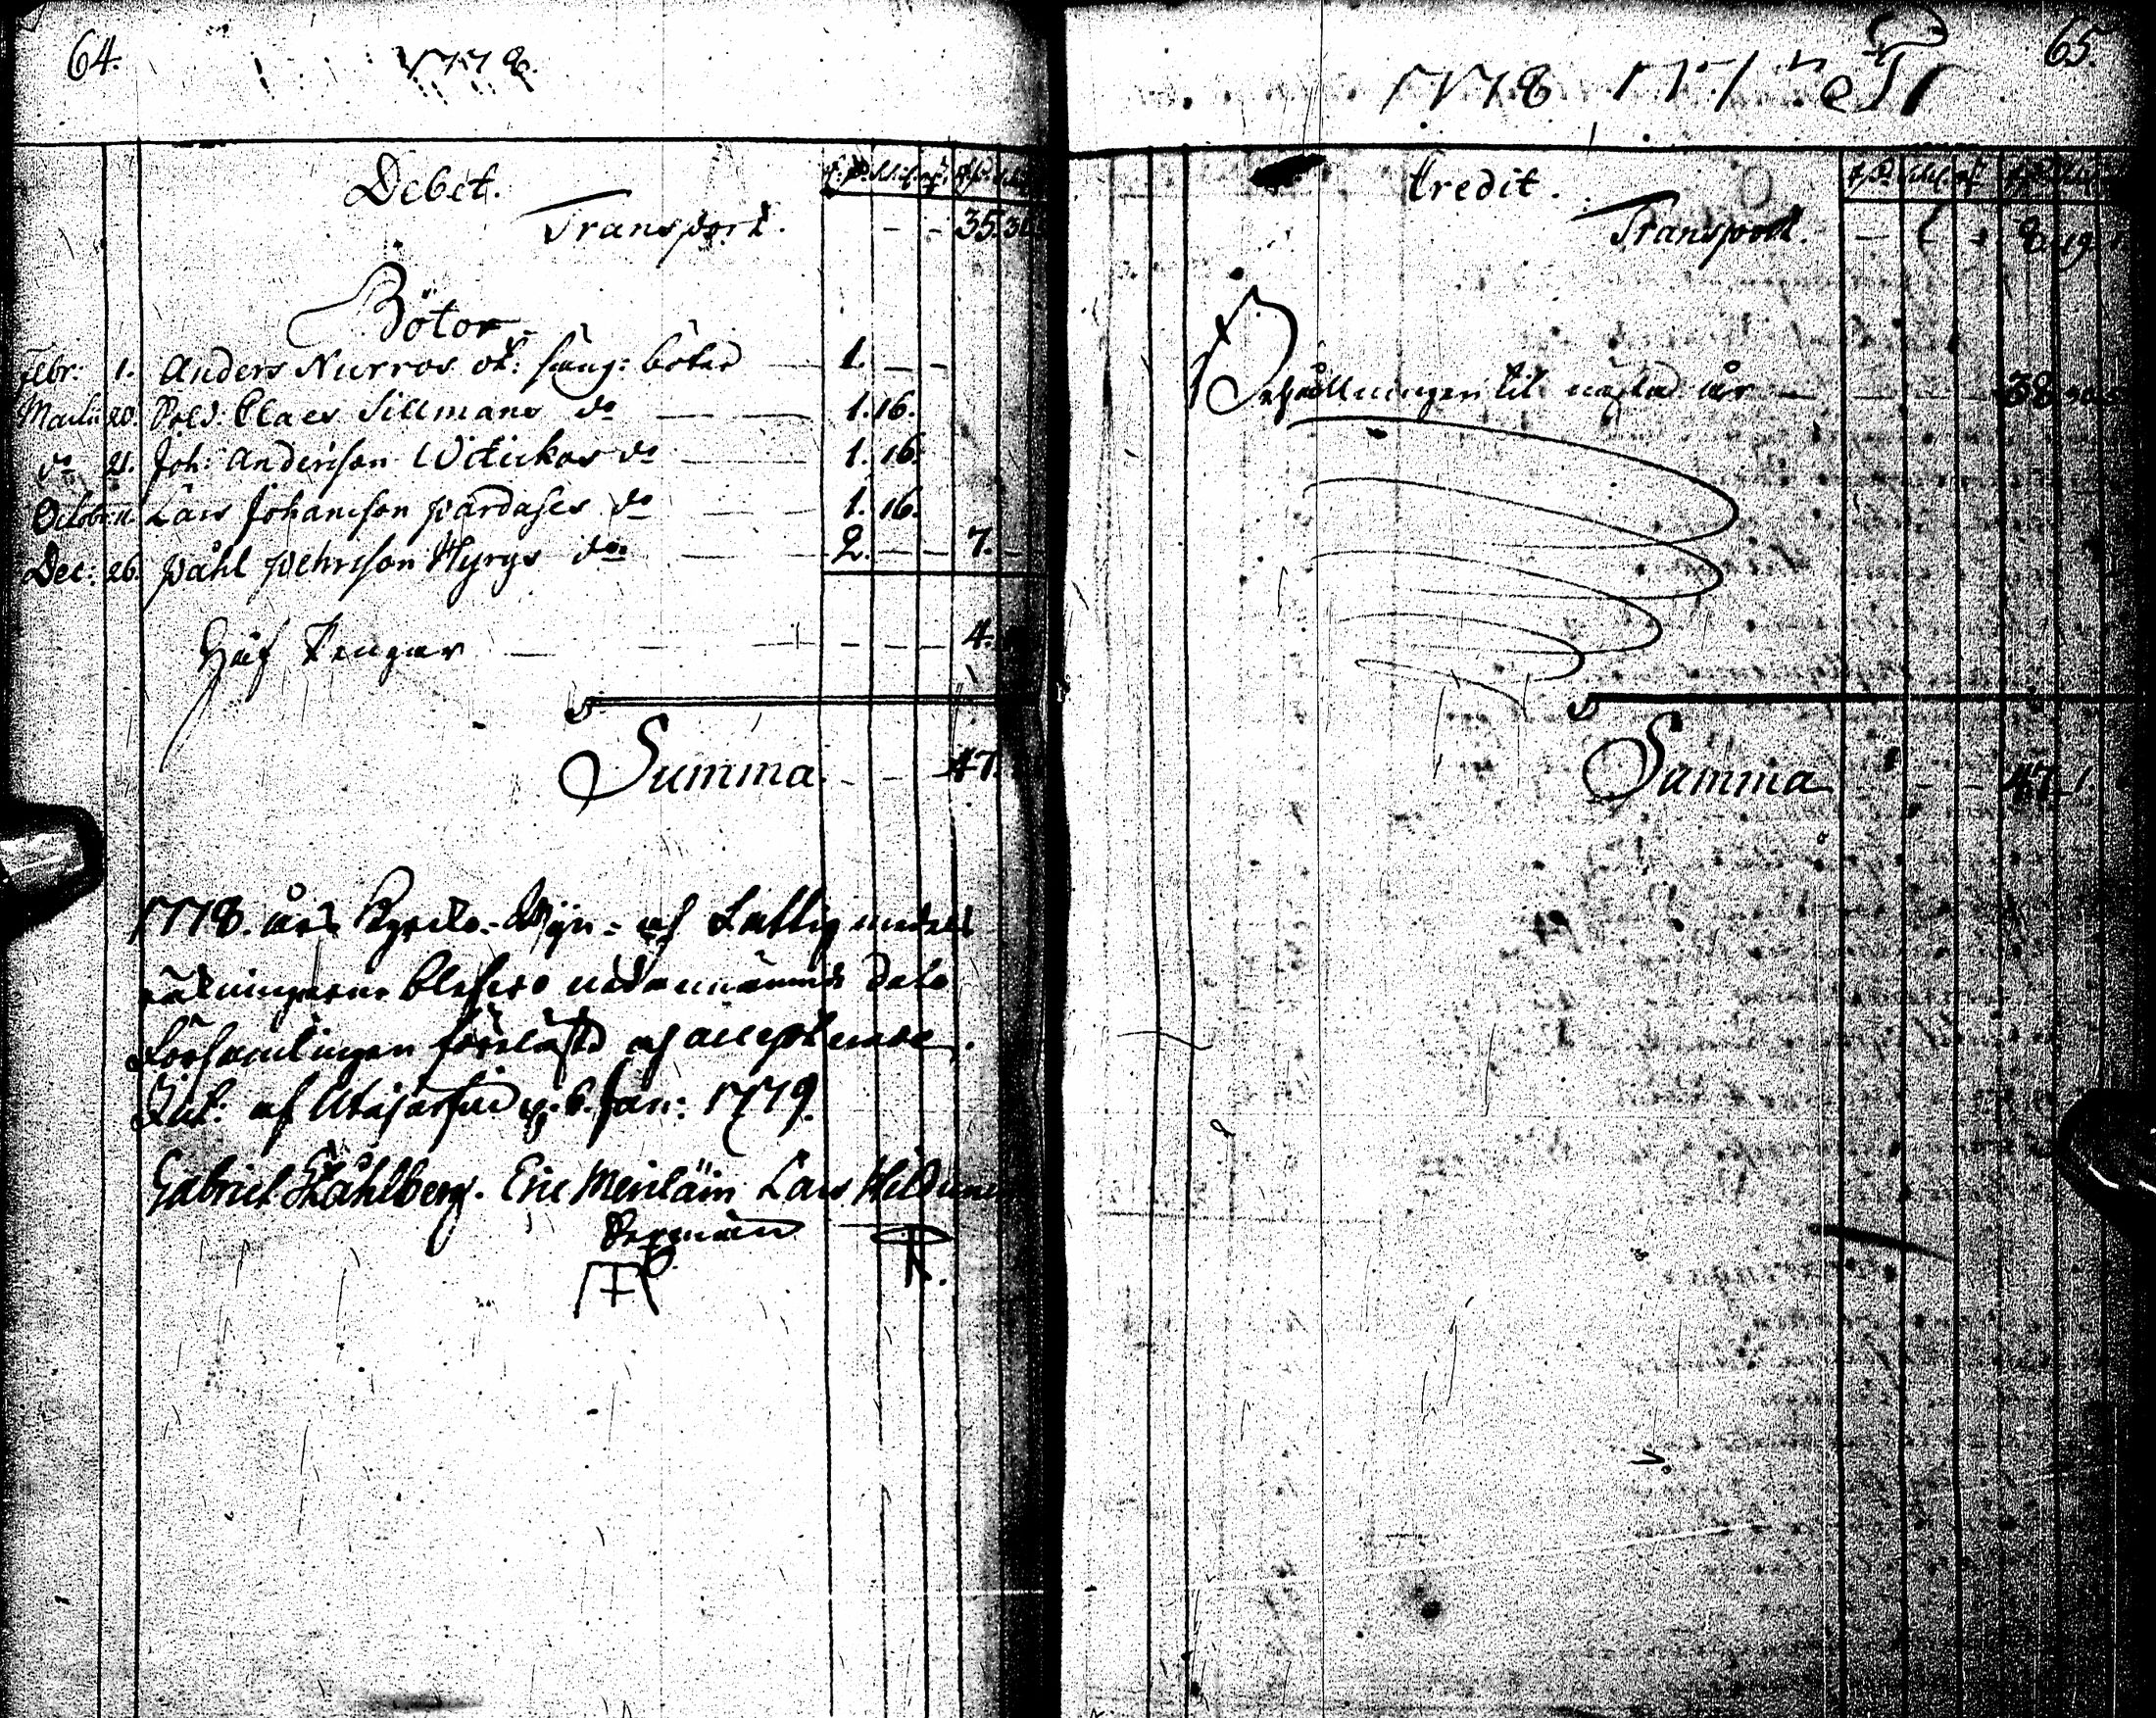 64.
1778.
Debet.
Transport. - - 35. 30
Böter
Febr: 1. Anders Nurros ot: säng: böter — 1. — -
Martii 20. Sold. Claes Sillmans do — — 1. 16.
do 21. Joh: Andersson Wittickas do — 1. 16.
Octobr: 11. Lars Johansson pardases do — — 1. 16.
Dec: 26. påhl pehrsson Hyrys do — — 2. — — 7. -
Håf Pengar — — — - - - 4.
Summa. - - - 47.
1778. års Kyrko- Wijn- och Fattig medels
räkningarne blefwo nedannämnde dato
Församlingen föreläste och accepterade.
Dat: af Utajärfwi d. 6. Jan: 1779.
Gabriel Ståhlberg. Eric Meriläin Lars Hildunen
Sexmän
65.
1778
Credit.
Transport. — 8. 19.
Behållningen til nästa år — — — — 38. 30
Summa - - - 47. 1.